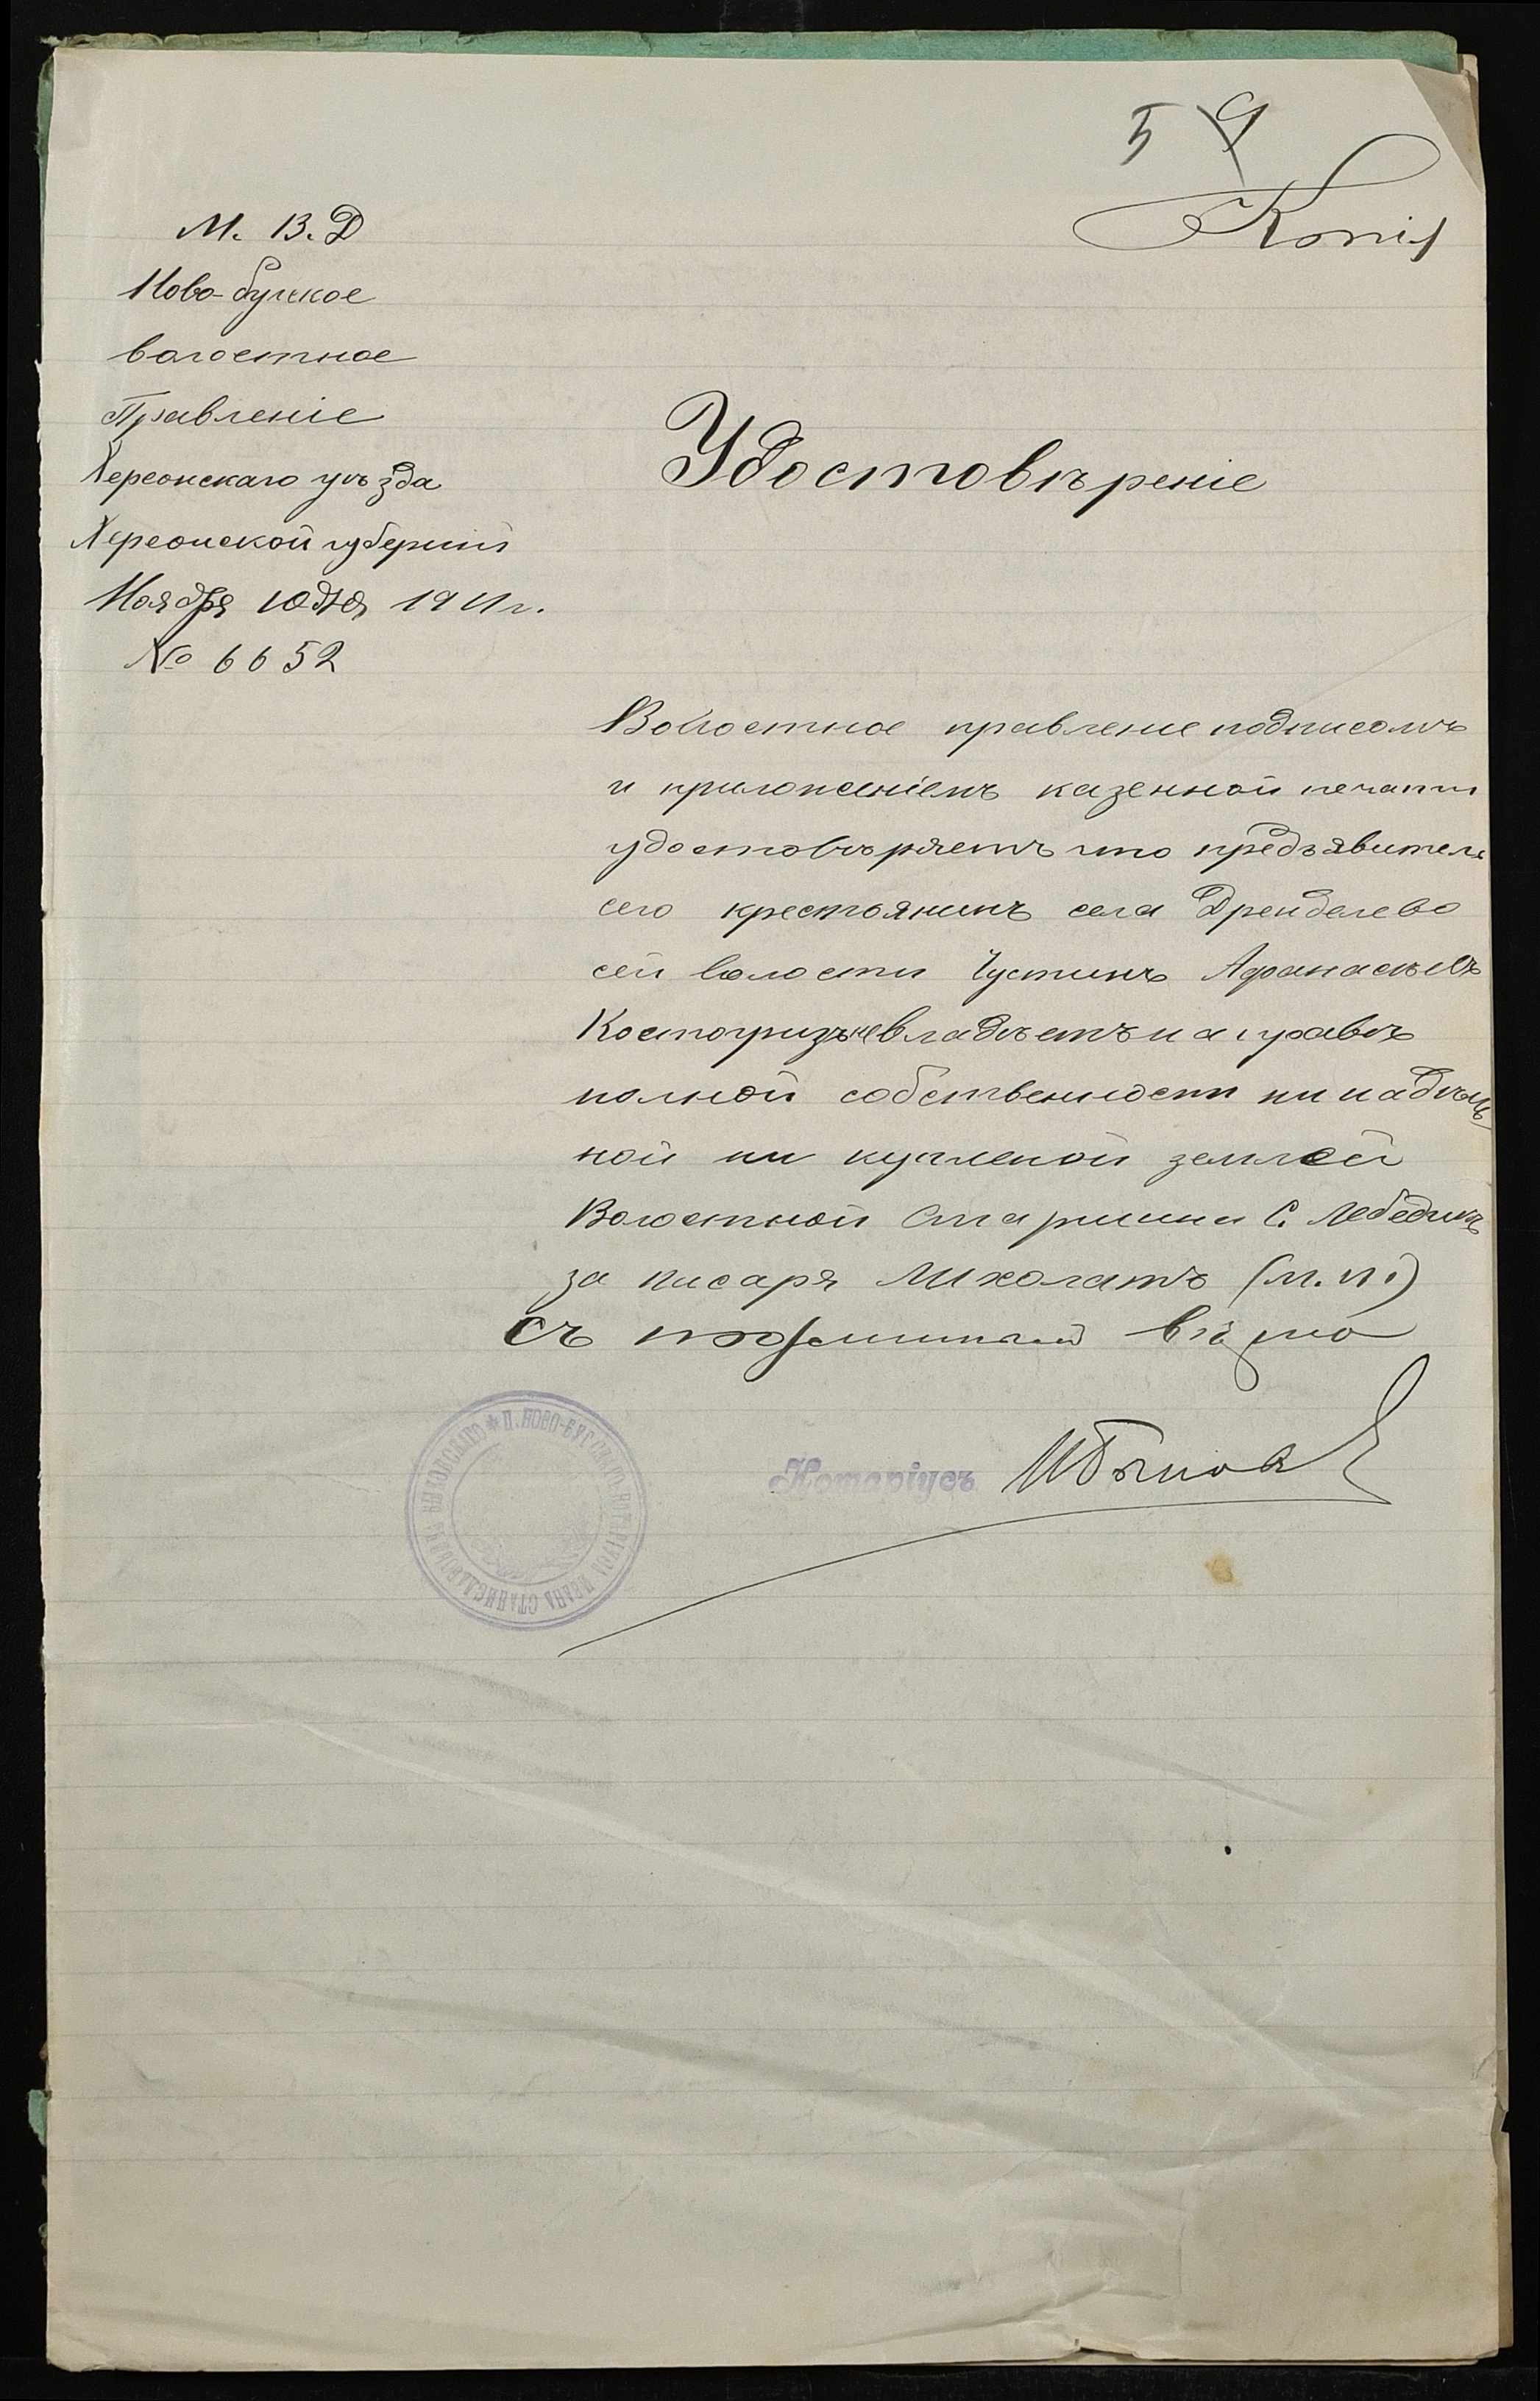 5 9
Копія
М. В. Д
Ново-бугское
волостное
Правленіе
Херсонскаго уѣзда
Херсонской губерніи
Ноября 10 дня 1911 г.
№ 6652
Удостовѣреніе
Волостное правление подписомъ
и приложеніемъ казенной печати
удостовѣряетъ что предъявитель
сего крестьянинъ села Дрендолево
сей волости Устинъ Афанасьевъ
Костогризъ невладѣетъ на правѣ
полной собственности ни надѣль
ной ни купленой землей
Волостной Старшина С. Лебединъ
за писаря Михолатъ (м. п.)
Съ подлиннымъ вѣрно
* П. НОВО-БУГСКІЙ НОТАРІУСЪ ИВАНЪ СТАНИСЛАВОВИЧЪ
Нотаріусъ